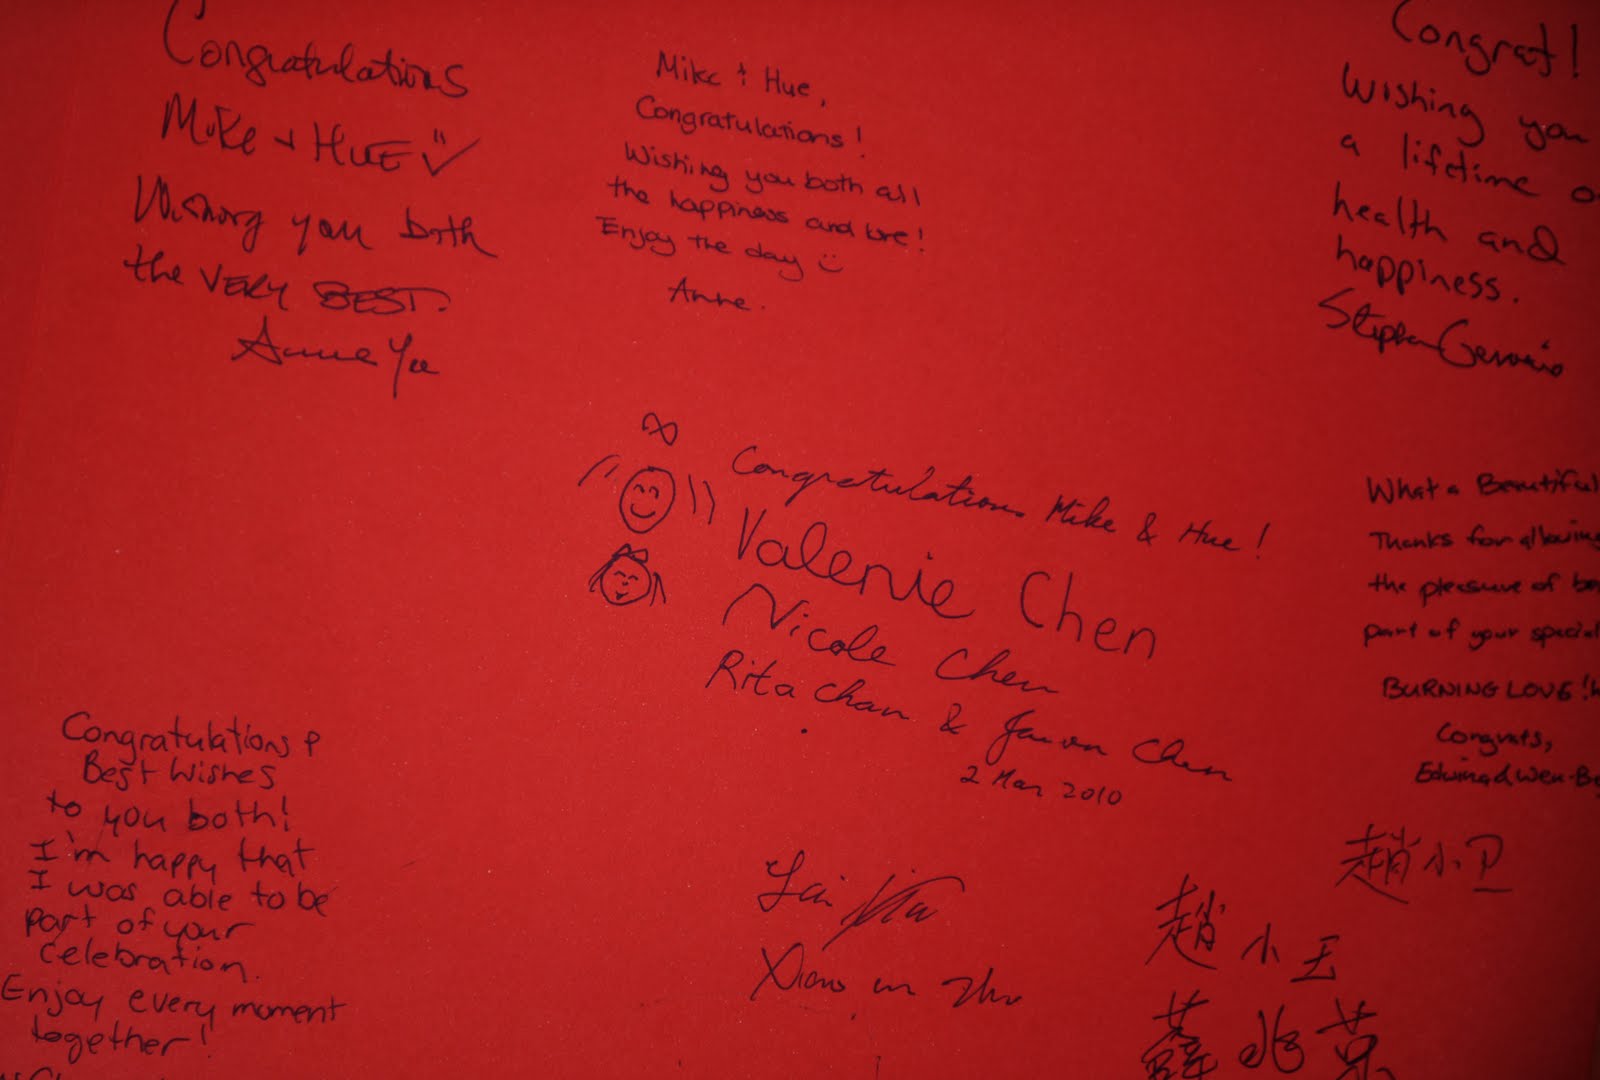 Congratulations
Mike + HUE
Wishing you both
the VERY BEST.
Anne Yee
Mike & Hue,
Congratulations!
Wishing you both all
the happiness and love!
Enjoy the day
Anne.
Congrat!
Wishing you
a lifetime o
health and
happiness.
Stephen
Congratulations Mike & Hue!
Valerie Chen
Nicole Chen
Rita Chan & Jason Chen
2 Mar 2010
What a Beautiful
Thanks for allowing
the pleasure of be
part of your special
BURNING LOVE!
Congrats,
Congratulations &
Best Wishes
to you both!
I'm happy that
I was able to be
part of your
celebration.
Enjoy every moment
together!
趙小卫
趙小玉
薛兆英